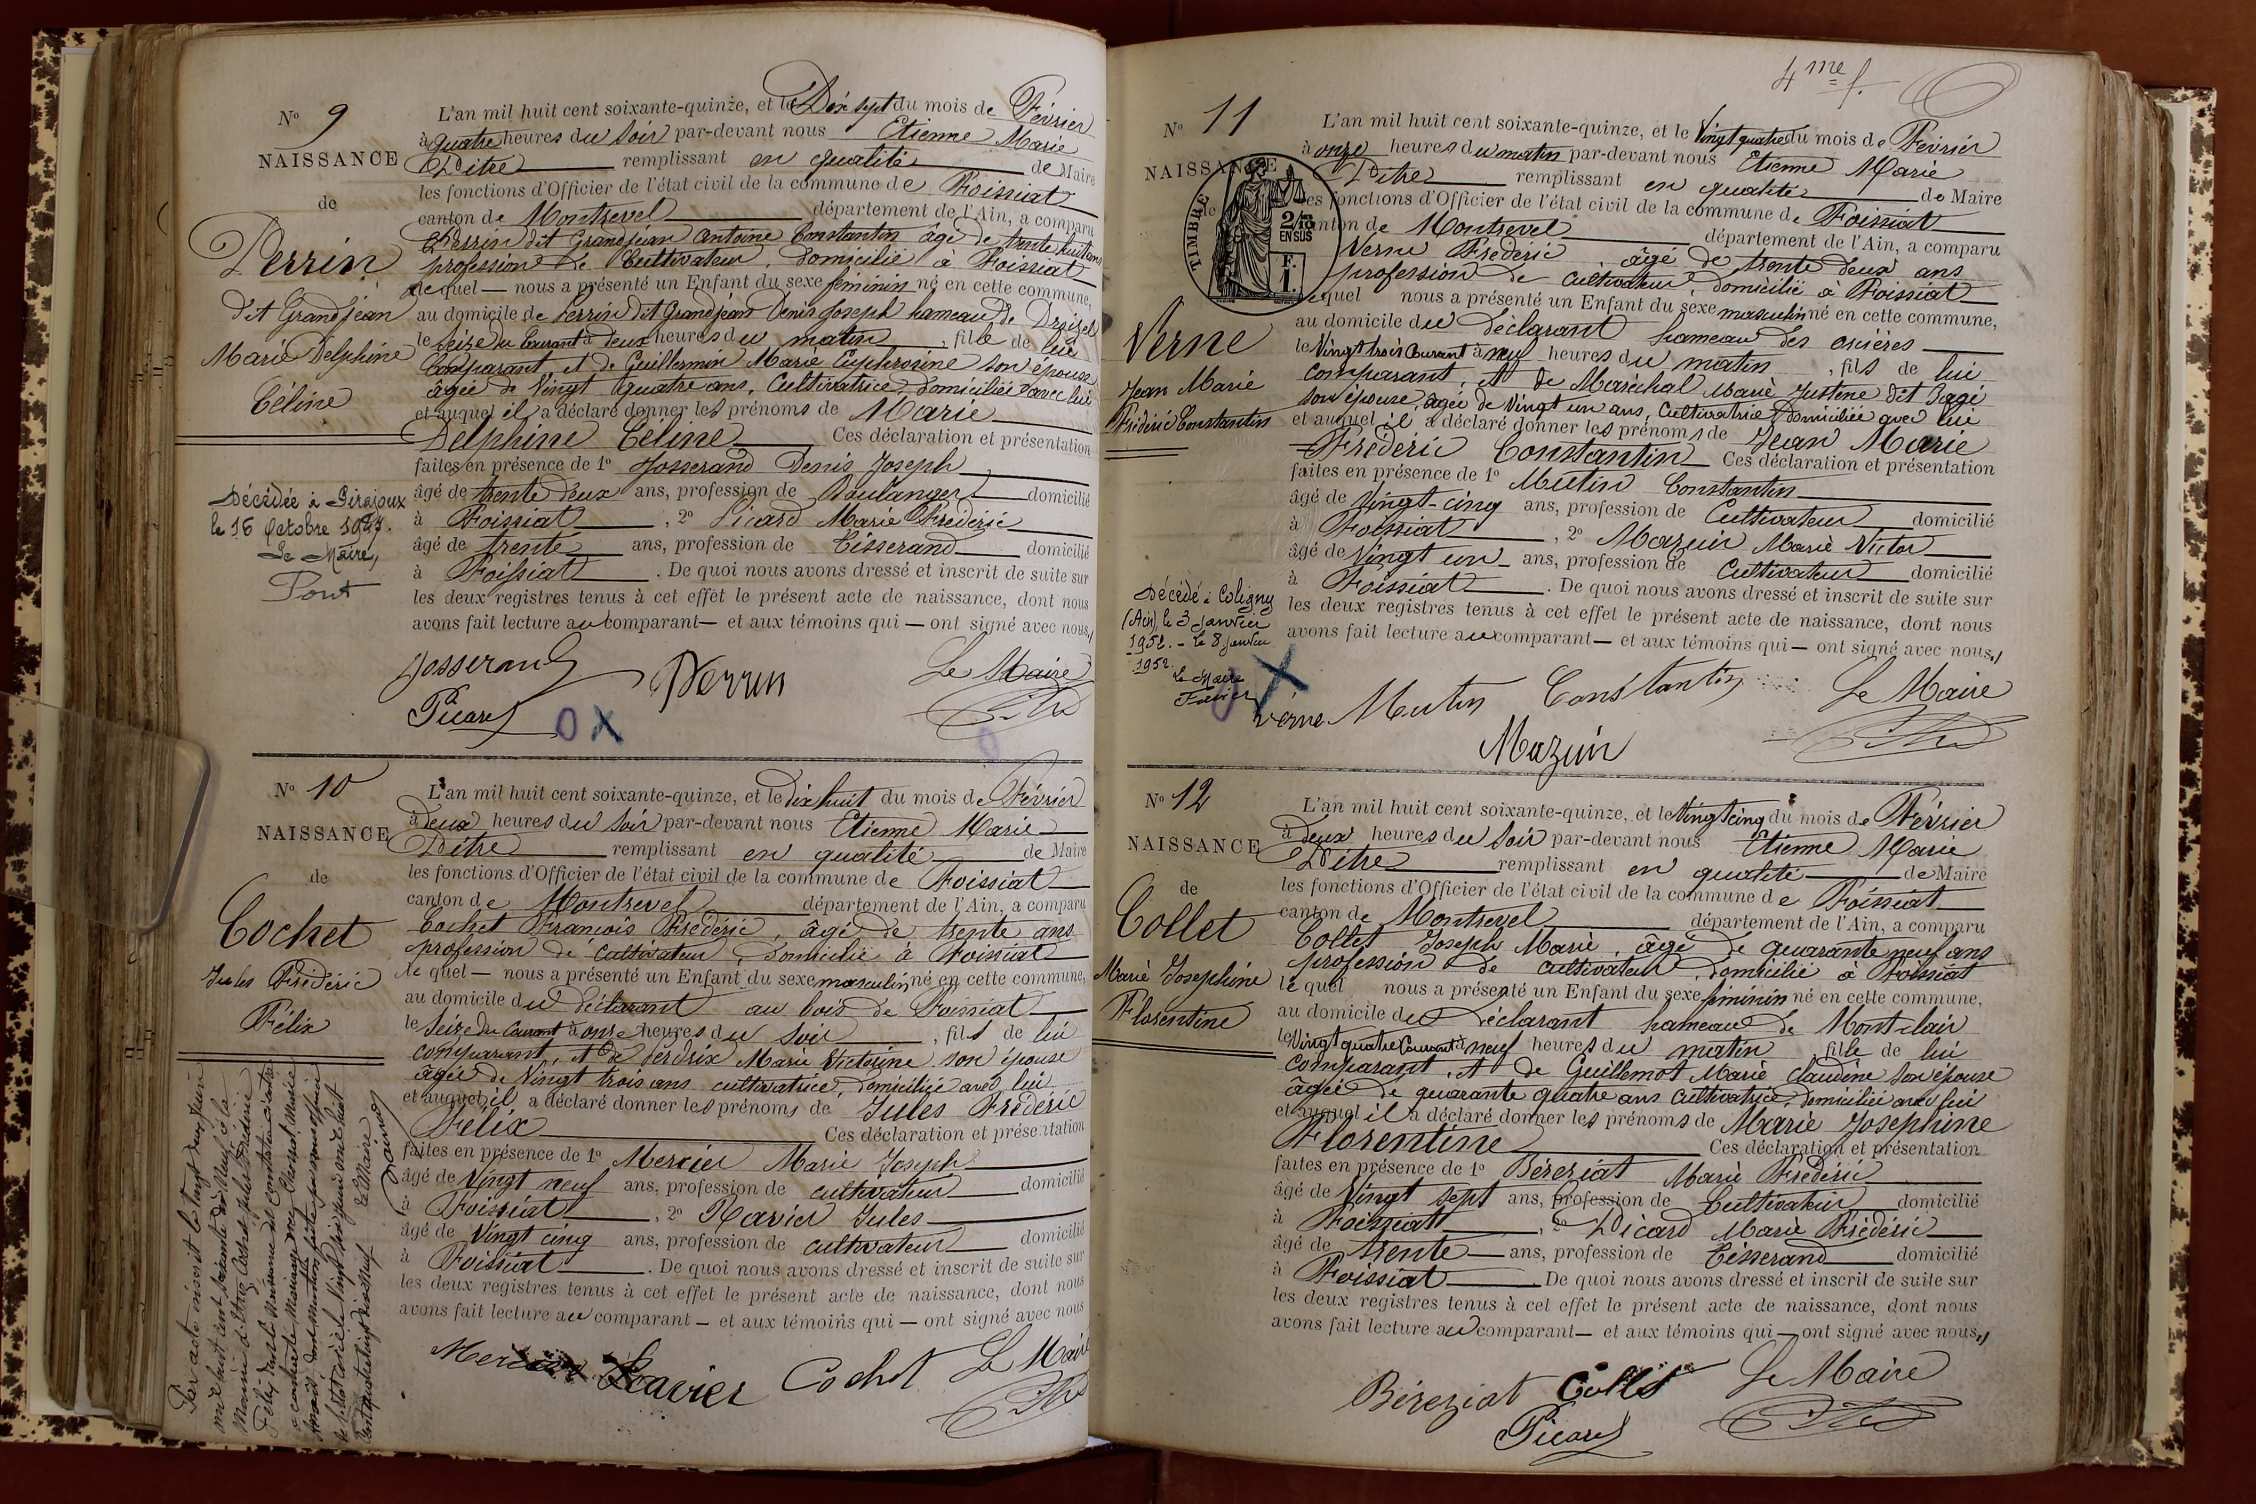 No 9
NAISSANCE
de
Perrin
dit Grandjean
Marie Delphine
Céline
Décédée à Pirajoux
le 16 Octobre 1947.
Le Maire,
Pont
L'an mil huit cent soixante-quinze, et le Dix sept du mois de Février
à quatre heures du Soir par-devant nous Etienne Marie
Pitre remplissant en qualité de Maire
les fonctions d'Officier de l'état civil de la commune de Foissiat
canton de Montrevel département de l'Ain, a comparu
Perrin dit Grandjean Antoine Constantin âgé de trente huit ans
profession de Cultivateur, domicilié à Foissiat
lequel — nous a présenté un Enfant du sexe féminin né en cette commune,
au domicile de Perrin dit Grandjean Denis Joseph hameau de
le Seize du Courant à deux heures du matin, fille de lui
Comparant, et de Guillermin Marie Euphrosine son épouse
âgée de Vingt quatre ans, Cultivatrice domiciliée avec lui
et auquel il a déclaré donner les prénoms de Marie
Delphine Céline Ces déclaration et présentation
faites en présence de 1o Josserand Denis Joseph
âgé de trente deux ans, profession de Boulanger domicilié
à Foissiat, 2o Picard Marie Frédéric
âgé de trente ans, profession de Tisserand domicilié
à Foissiat. De quoi nous avons dressé et inscrit de suite sur
les deux registres tenus à cet effet le présent acte de naissance, dont nous
avons fait lecture au comparant — et aux témoins qui — ont signé avec nous,
Josserand Perrin Le Maire
Picard
O X
No 10
NAISSANCE
de
Cochet
Jules Frédéric
Félix
L'an mil huit cent soixante-quinze, et le dix huit du mois de Février
à Deux heures du Soir par-devant nous Etienne Marie
Pitre remplissant en qualité de Maire
les fonctions d'Officier de l'état civil de la commune de Foissiat
canton de Montrevel département de l'Ain, a comparu
Cochet François Frédéric, âgé de trente ans
profession de cultivateur, domicilié à Foissiat
le quel — nous a présenté un Enfant du sexe masculin né en cette commune,
au domicile du Déclarant au bois de Foissiat
le Seize du Courant à onze heures du soir, fils de lui
comparant, et de Perdrix Marie Victorine son épouse
âgée de Vingt trois ans cultivatrice, domiciliée avec lui
et auquel il a déclaré donner les prénoms de Jules Frédéric
Félix Ces déclaration et présentation
faites en présence de 1o Mercier Marie Joseph
âgé de Vingt neuf ans, profession de cultivateur domicilié
à Foissiat, 2o Ravier Jules
âgé de Vingt cinq ans, profession de cultivateur domicilié
à Foissiat. De quoi nous avons dressé et inscrit de suite sur
les deux registres tenus à cet effet le présent acte de naissance, dont nous
avons fait lecture au comparant — et aux témoins qui — ont signé avec nous
Mercier Ravier Cochet Le Maire
4me f.
No 11
NAISSANCE
de
TIMBRE
2/10
EN SUS
F.
1.
Verne
Jean Marie
Frédéric Constantin
Décédé à Coligny
(Ain) le 3 janvier
1952. - le 8 janvier
1952.
Le Maire
L'an mil huit cent soixante-quinze, et le Vingt quatre du mois de Février
à onze heures du matin par-devant nous Etienne Marie
Pitre remplissant en qualité de Maire
les fonctions d'Officier de l'état civil de la commune de Foissiat
canton de Montrevel département de l'Ain, a comparu
Verne Frédéric âgé de trente deux ans
profession de Cultivateur, domicilié à Foissiat
lequel nous a présenté un Enfant du sexe masculin né en cette commune,
au domicile du déclarant hameau des
le Vingt trois Courant à neuf heures du matin, fils de lui
comparant, et de Maréchal Marie Justine dit
son épouse, âgée de Vingt un ans, Cultivatrice, domiciliée avec lui
et auquel il a déclaré donner les prénoms de Jean Marie
Frédéric Constantin Ces déclaration et présentation
faites en présence de 1o Mutin Constantin
âgé de Vingt-cinq ans, profession de Cultivateur domicilié
à Foissiat, 2o Mazuir Marie Victor
âgé de Vingt un ans, profession de Cultivateur domicilié
à Foissiat. De quoi nous avons dressé et inscrit de suite sur
les deux registres tenus à cet effet le présent acte de naissance, dont nous
avons fait lecture au comparant — et aux témoins qui — ont signé avec nous,
Verne Mutin Constantin Le Maire
Mazuir
No 12
NAISSANCE
de
Collet
Marie Josephine
Florentine
L'an mil huit cent soixante-quinze, et le Vingt cinq du mois de Février
à Deux heures du Soir par-devant nous Etienne Marie
Pitre remplissant en qualité de Maire
les fonctions d'Officier de l'état civil de la commune de Foissiat
canton de Montrevel département de l'Ain, a comparu
Collet Joseph Marie, âgé de quarante neuf ans
profession de cultivateur, domicilié à Foissiat
le quel nous a présenté un Enfant du sexe féminin né en cette commune,
au domicile du Déclarant hameau de Mont-clair
le Vingt quatre Courant à neuf heures du matin, fille de lui
comparant, et de Guillemot Marie claudine son épouse
âgée de quarante quatre ans cultivatrice, domiciliée avec lui
et auquel il a déclaré donner les prénoms de Marie Josephine
Florentine Ces déclaration et présentation
faites en présence de 1o Béreziat Marie Frédéric
âgé de Vingt sept ans, profession de Cultivateur domicilié
à Foissiat, 2o Picard Marie Frédéric
âgé de trente ans, profession de Tisserand domicilié
à Foissiat. De quoi nous avons dressé et inscrit de suite sur
les deux registres tenus à cet effet le présent acte de naissance, dont nous
avons fait lecture au comparant — et aux témoins qui — ont signé avec nous,
Béreziat Collet Le Maire
Picard